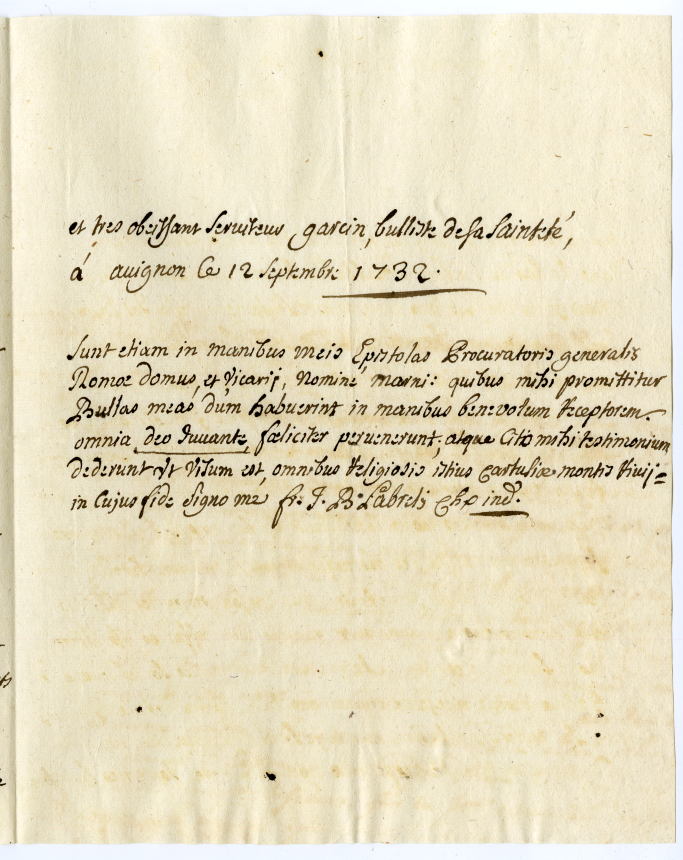 et tres obeissant serviteur garcin, bulliste de sa Sainteté,
á avignon le 12 septembre 1732.
Sunt etiam in manibus meis Epistolas Procuratoris generalis
Romæ domus, et Vicarij, Nomine marni: quibus mihi promittitur
Bullas meas dum habuerint in manibus benevolum receptorem.
omnia deo Juvante, fæliciter pervenerunt, atque Cito mihi testimonium
dederunt Vt Visum est, omnibus Religiosis istius Cartusiæ montis
in Cujus fide signo me fr. J. B.